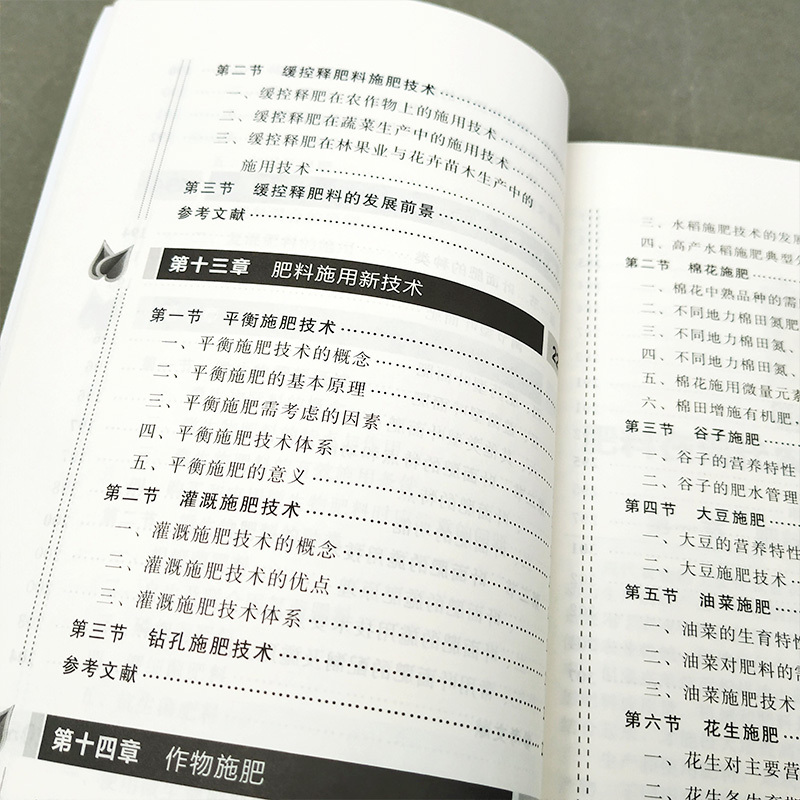 第二节 缓控释肥料施肥技术
一、缓控释肥在农作物上的施用技术
二、缓控释肥在蔬菜生产中的施用技术
三、缓控释肥在林果业与花卉苗木生产中的
施用技术
第三节 缓控释肥料的发展前景
参考文献
第十三章 肥料施用新技术
第一节 平衡施肥技术
一、平衡施肥技术的概念
二、平衡施肥的基本原理
三、平衡施肥需考虑的因素
四、平衡施肥技术体系
五、平衡施肥的意义
第二节 灌溉施肥技术
一、灌溉施肥技术的概念
二、灌溉施肥技术的优点
三、灌溉施肥技术体系
第三节 钻孔施肥技术
参考文献
第十四章 作物施肥
三、水稻施肥技术的发展
四、高产水稻施肥典型
第二节 棉花施肥
一、棉花中熟品种的需
二、不同地力棉田氮肥
三、不同地力棉田氮、
四、不同地力棉田氮、
五、棉花施用微量元素
六、棉田增施有机肥，
第三节 谷子施肥
一、谷子的营养特性
二、谷子的肥水管理
第四节 大豆施肥
一、大豆的营养特性
二、大豆施肥技术
第五节 油菜施肥
一、油菜的生育特性
二、油菜对肥料的需
三、油菜施肥技术
第六节 花生施肥
一、花生对主要营
二、花生各生育期